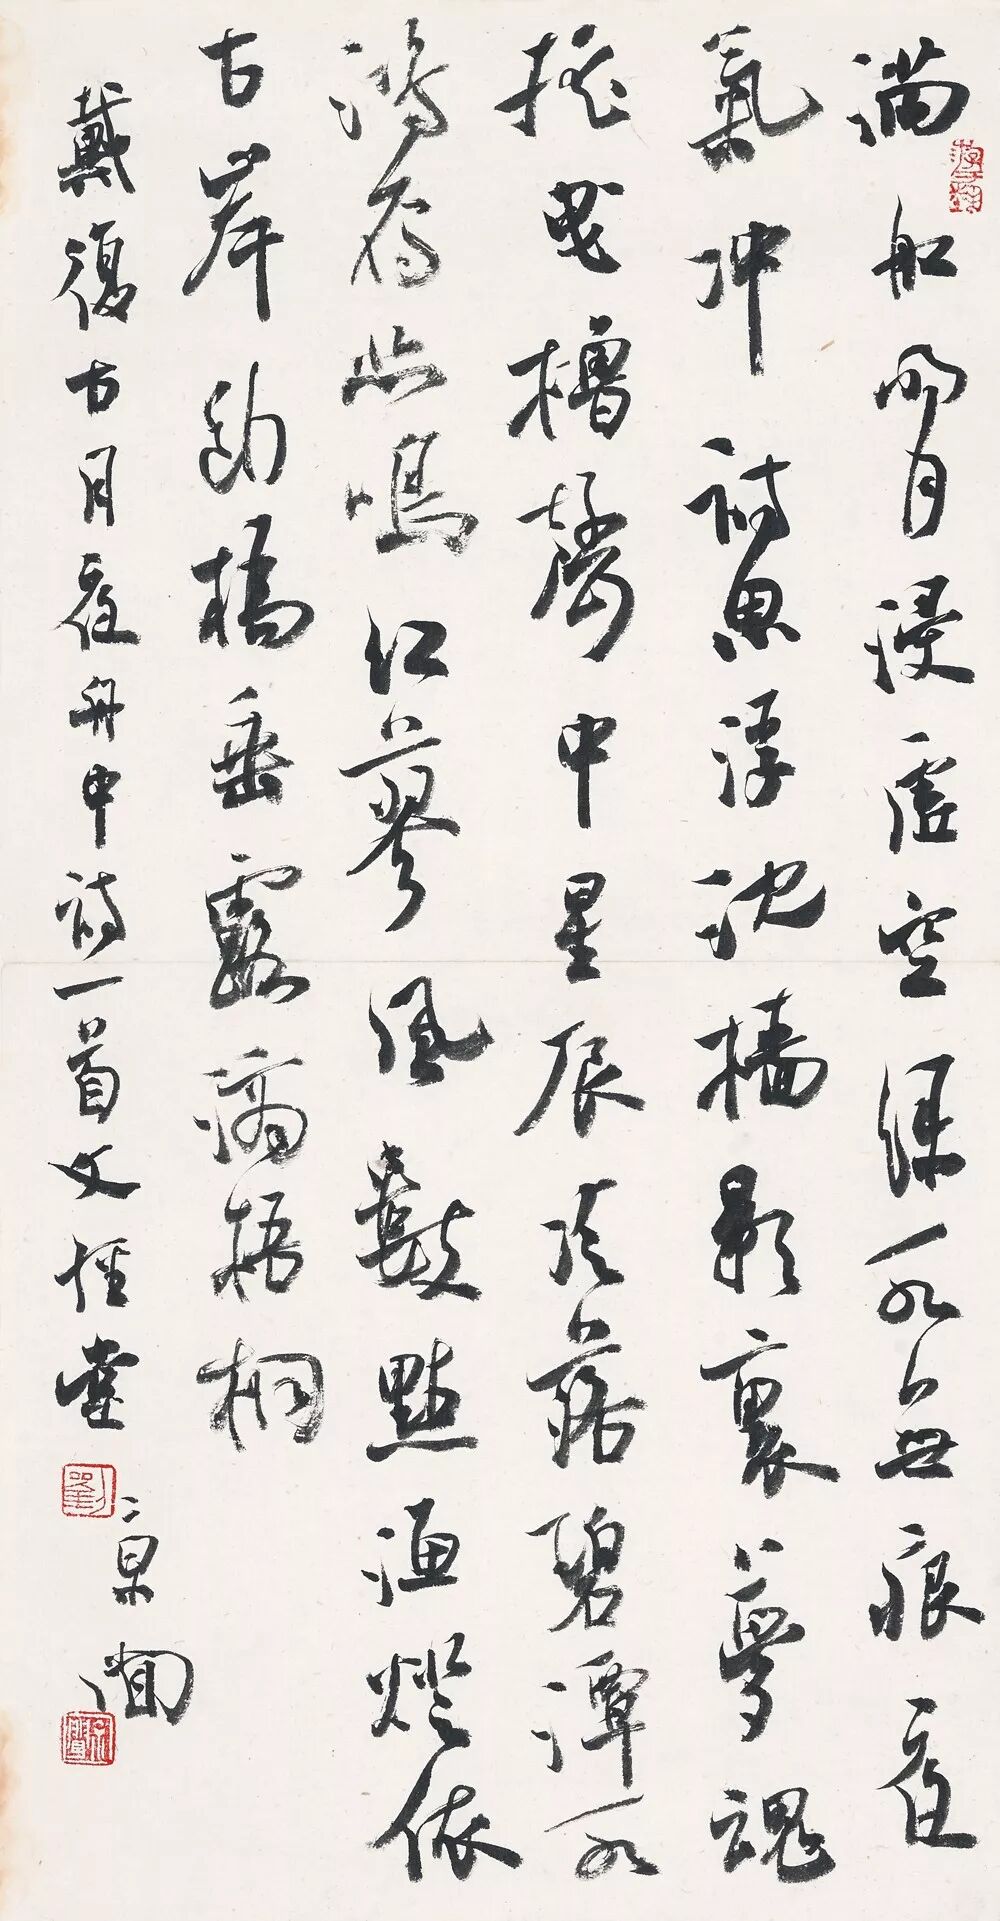 满船明月浸虚空绿水無痕夜
氣冲詩思浮沈樯影裏夢魂
摇曳橹聲中星辰冷落碧潭水
鴻雁悲鳴红蓼風數點渔燈依
古岸断橋垂露滴梧桐
戴復古月夜舟中詩一首文堂
京闻